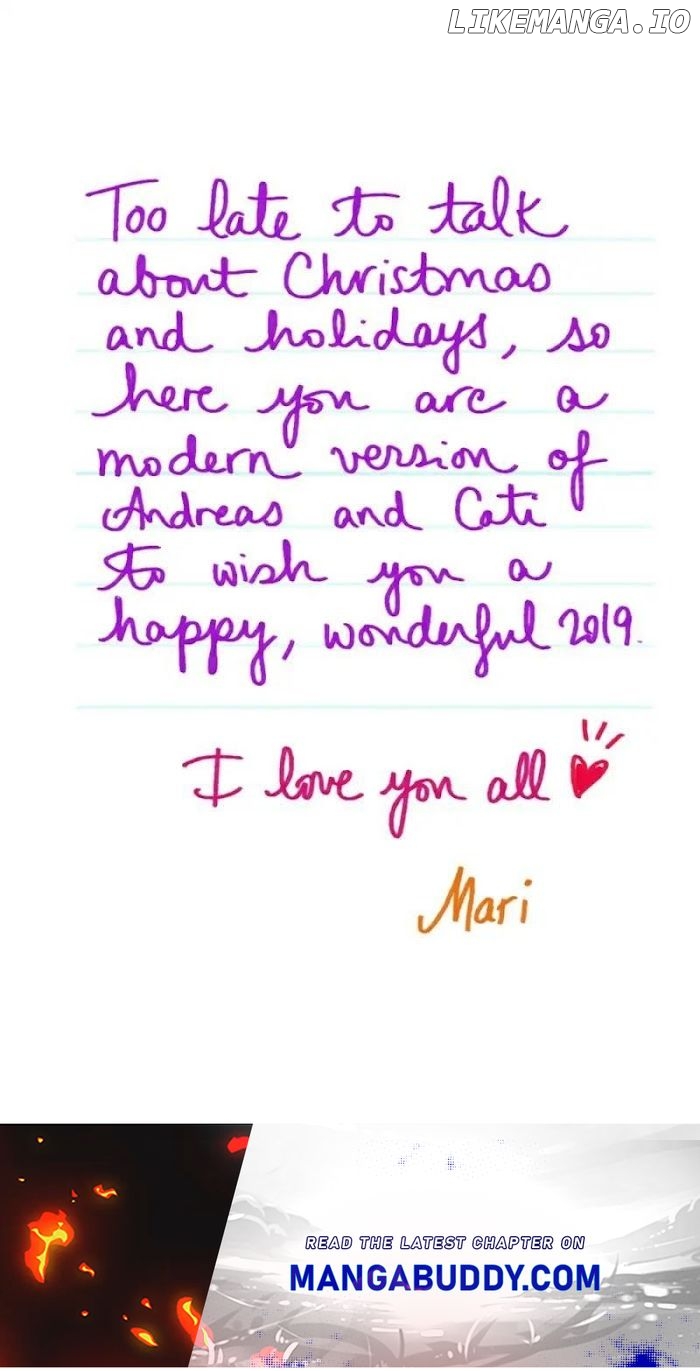 LIKEMANGA.IO
Too late to talk
about Christmas
and holidays, so
here you are a
modern version of
Andreas and Cati
to wish you a
happy, wonderful 2019.
I love you all
Mari
READ THE LATEST CHAPTER ON
MANGABUDDY.COM